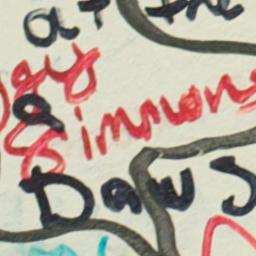 at the
a
Simmons
Daws